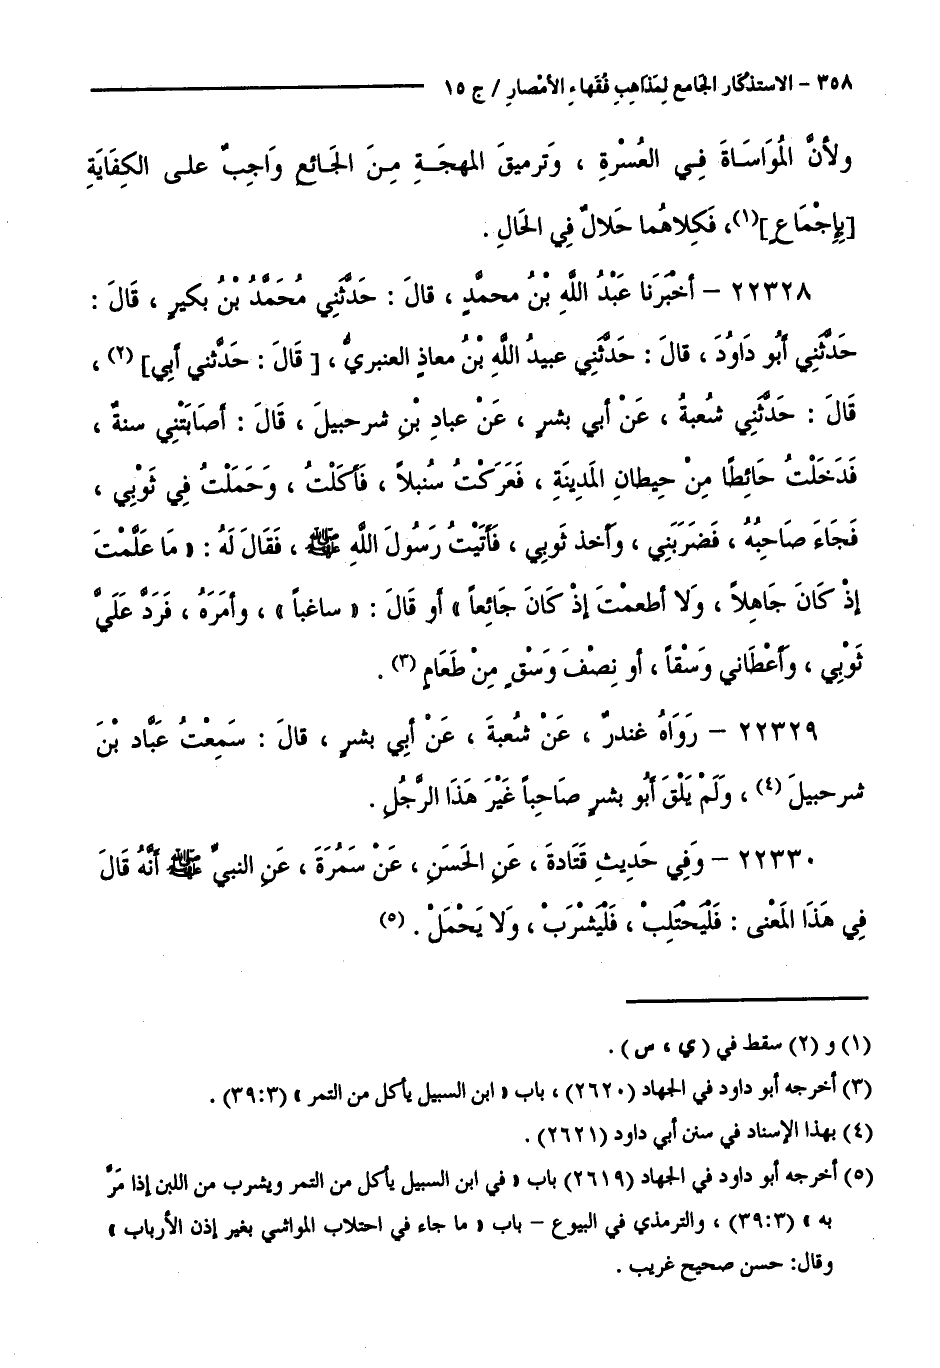 ٣٥٨ - الاستذكار الجامع لِمَذاهِبِ فُقَهاءِ الأمْصارِ / ج ١٥
ولأنَّ المُوَاسَاةَ فِي العُسْرةِ ، وَترميقَ المهجَةِ مِنَ الجَائع وَاجِبٌ على الكِفَايَةِ
[بِإِجْمَاعٍ](١)، فَكِلاهُما حَلالٌ فِي الحَالِ .
٢٢٣٢٨ - أخبَرَنا عَبْدُ اللَّهِ بْنُ محمدٍ ، قالَ : حَدَّثَنِي مُحَمَّدُ بْنُ بكيرٍ ، قَالَ :
حَدَّثَنِي أَبُو دَاوُدَ ، قالَ : حَدَّثَنِي عبيدُ اللَّهِ بْنُ معاذٍ العنبريُّ ، [ قَالَ : حَدَّثني أَبِي] (٢) ،
قَالَ : حَدَّثَنِي شُعبةُ ، عَنْ أبي بشرٍ ، عَنْ عبادِ بْنِ شرحبيلَ ، قَالَ : أصَابَتْنِي سنةٌ ،
فَدَخَلْتُ حَائِطًا مِنْ حِيطانِ المَدِينَةِ ، فَعَرَكْتُ سُنبلاً ، فَأكَلْتُ ، وَحَمَلْتُ فِي ثَوْبِي ،
فَجَاءَ صَاحِبُهُ ، فَضَرَبَنِي ، وأَخذ ثوبِي ، فَأَتَيْتُ رَسُولَ اللَّهِ ﷺ ، فَقَالَ لَهُ : « مَا عَلَّمْتَ
إِذْ كَانَ جَاهِلاً ، وَلا أطعمْتَ إذْ كَانَ جَائِعاً » أو قَالَ : « ساغباً » ، وأمَرَهُ ، فَرَدَّ عَلَيَّ
ثَوْبِي ، وَأَعْطَاني وَسْقاً ، أو نِصْفَ وَسْقٍ مِنْ طَعَامٍ (٣) .
٢٢٣٢٩ - رَوَاهُ غندرٌ ، عَنْ شُعبةَ ، عَنْ أبي بشرٍ ، قالَ : سَمِعْتُ عَبَّاد بْنَ
شرحبيلَ (٤) ، وَلَمْ يَلْقَ أَبُو بشرٍ صَاحِباً غَيْرَ هَذَا الرَّجُلِ .
٢٢٣٣٠ - وَفِي حَدِيثِ قَتَادَةَ ، عَنِ الحَسَنِ ، عَنْ سَمُرَةَ ، عَنِ النبيِّ ﷺ أَنَّهُ قَالَ
فِي هَذَا المَعْنى : فَلْيَحْتَلِبْ ، فَلْيَشْرَبْ ، وَلا يَحْمَلْ . (٥)
(١) و (٢) سقط في ( ي ، س ) .
(٣) أخرجه أبو داود في الجهاد (٢٦٢٠) ، باب « ابن السبيل يأكل من التمر » (٣٩:٣) .
(٤) بهذا الإسناد في سنن أبي داود (٢٦٢١) .
(٥) أخرجه أبو داود في الجهاد (٢٦١٩) باب « في ابن السبيل يأكل من التمر ويشرب من اللبن إذا مَرَّ
به » (٣٩:٣) ، والترمذي في البيوع - باب « ما جاء في احتلاب المواشي بغير إذن الأرباب »
وقال: حسن صحيح غريب .